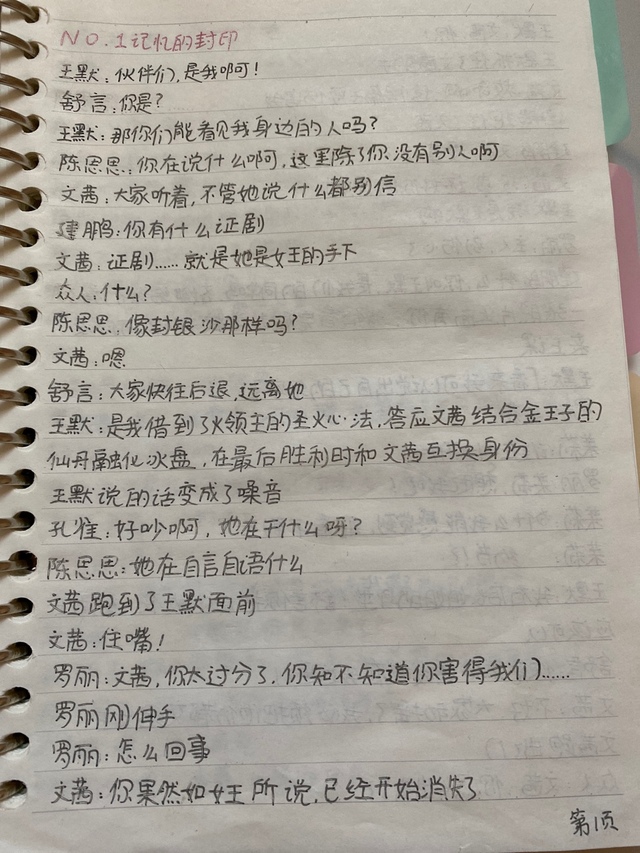 NO.1记忆的封印
王默:伙伴们,是我啊!
舒言:你是?
王默:那你们能看见我身边的人吗?
陈思思:你在说什么啊,这里除了你没有别人啊
文茜:大家听着,不管她说什么都别信
建鹏:你有什么证剧
文茜:证剧……就是她是女王的手下
众人:什么?
陈思思:像封银沙那样吗?
文茜:嗯
舒言:大家快往后退,远离她
王默:是我借到了火领主的圣火心法,答应文茜结合金王子的
仙丹融化冰盘,在最后胜利时和文茜互换身份
王默说的话变成了噪音
孔雀:好吵啊,她在干什么呀?
陈思思:她在自言自语什么
文茜跑到了王默面前
文茜:住嘴!
罗丽:文茜,你太过分了,你知不知道你害得我们……
罗丽刚伸手
罗丽:怎么回事
文茜:你果然如女王所说,已经开始消失了
第1页